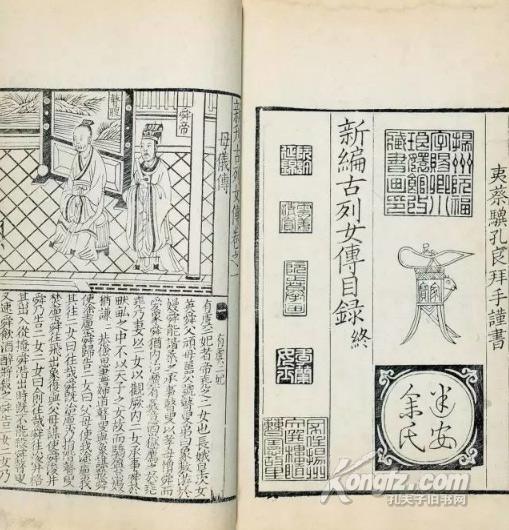 夷蔡驥孔良拜手謹書
建安
余氏
新編古列女傳目録終
母儀傳
舜帝
有虞二妃
有虞二妃者帝堯之二女也長娥皇次女
英舜父頑母嚚父號瞽叟弟曰象敖游於
嫚舜能諧柔之承事瞽叟以孝母憎舜而
愛象舜猶內治靡有姦意四嶽薦之於堯
堯乃妻以二女以觀厥內二女承事舜於
畎畝之中不以天子之女故而驕盈怠嫚
猶謙謙恭儉思盡婦道瞽叟與象謀殺舜
使塗廩舜歸告二女曰父母使我塗廩我
其往二女曰往哉舜既治廩乃捐階瞽叟
焚廩舜往飛出象復與父母謀使舜浚井
舜乃告二女二女曰俞往哉舜往浚井格
其出入從掩舜潛出時既不能殺舜瞽叟
又速舜飲酒醉將殺之舜告二女二女乃
Kongfz.com
孔夫子旧书网